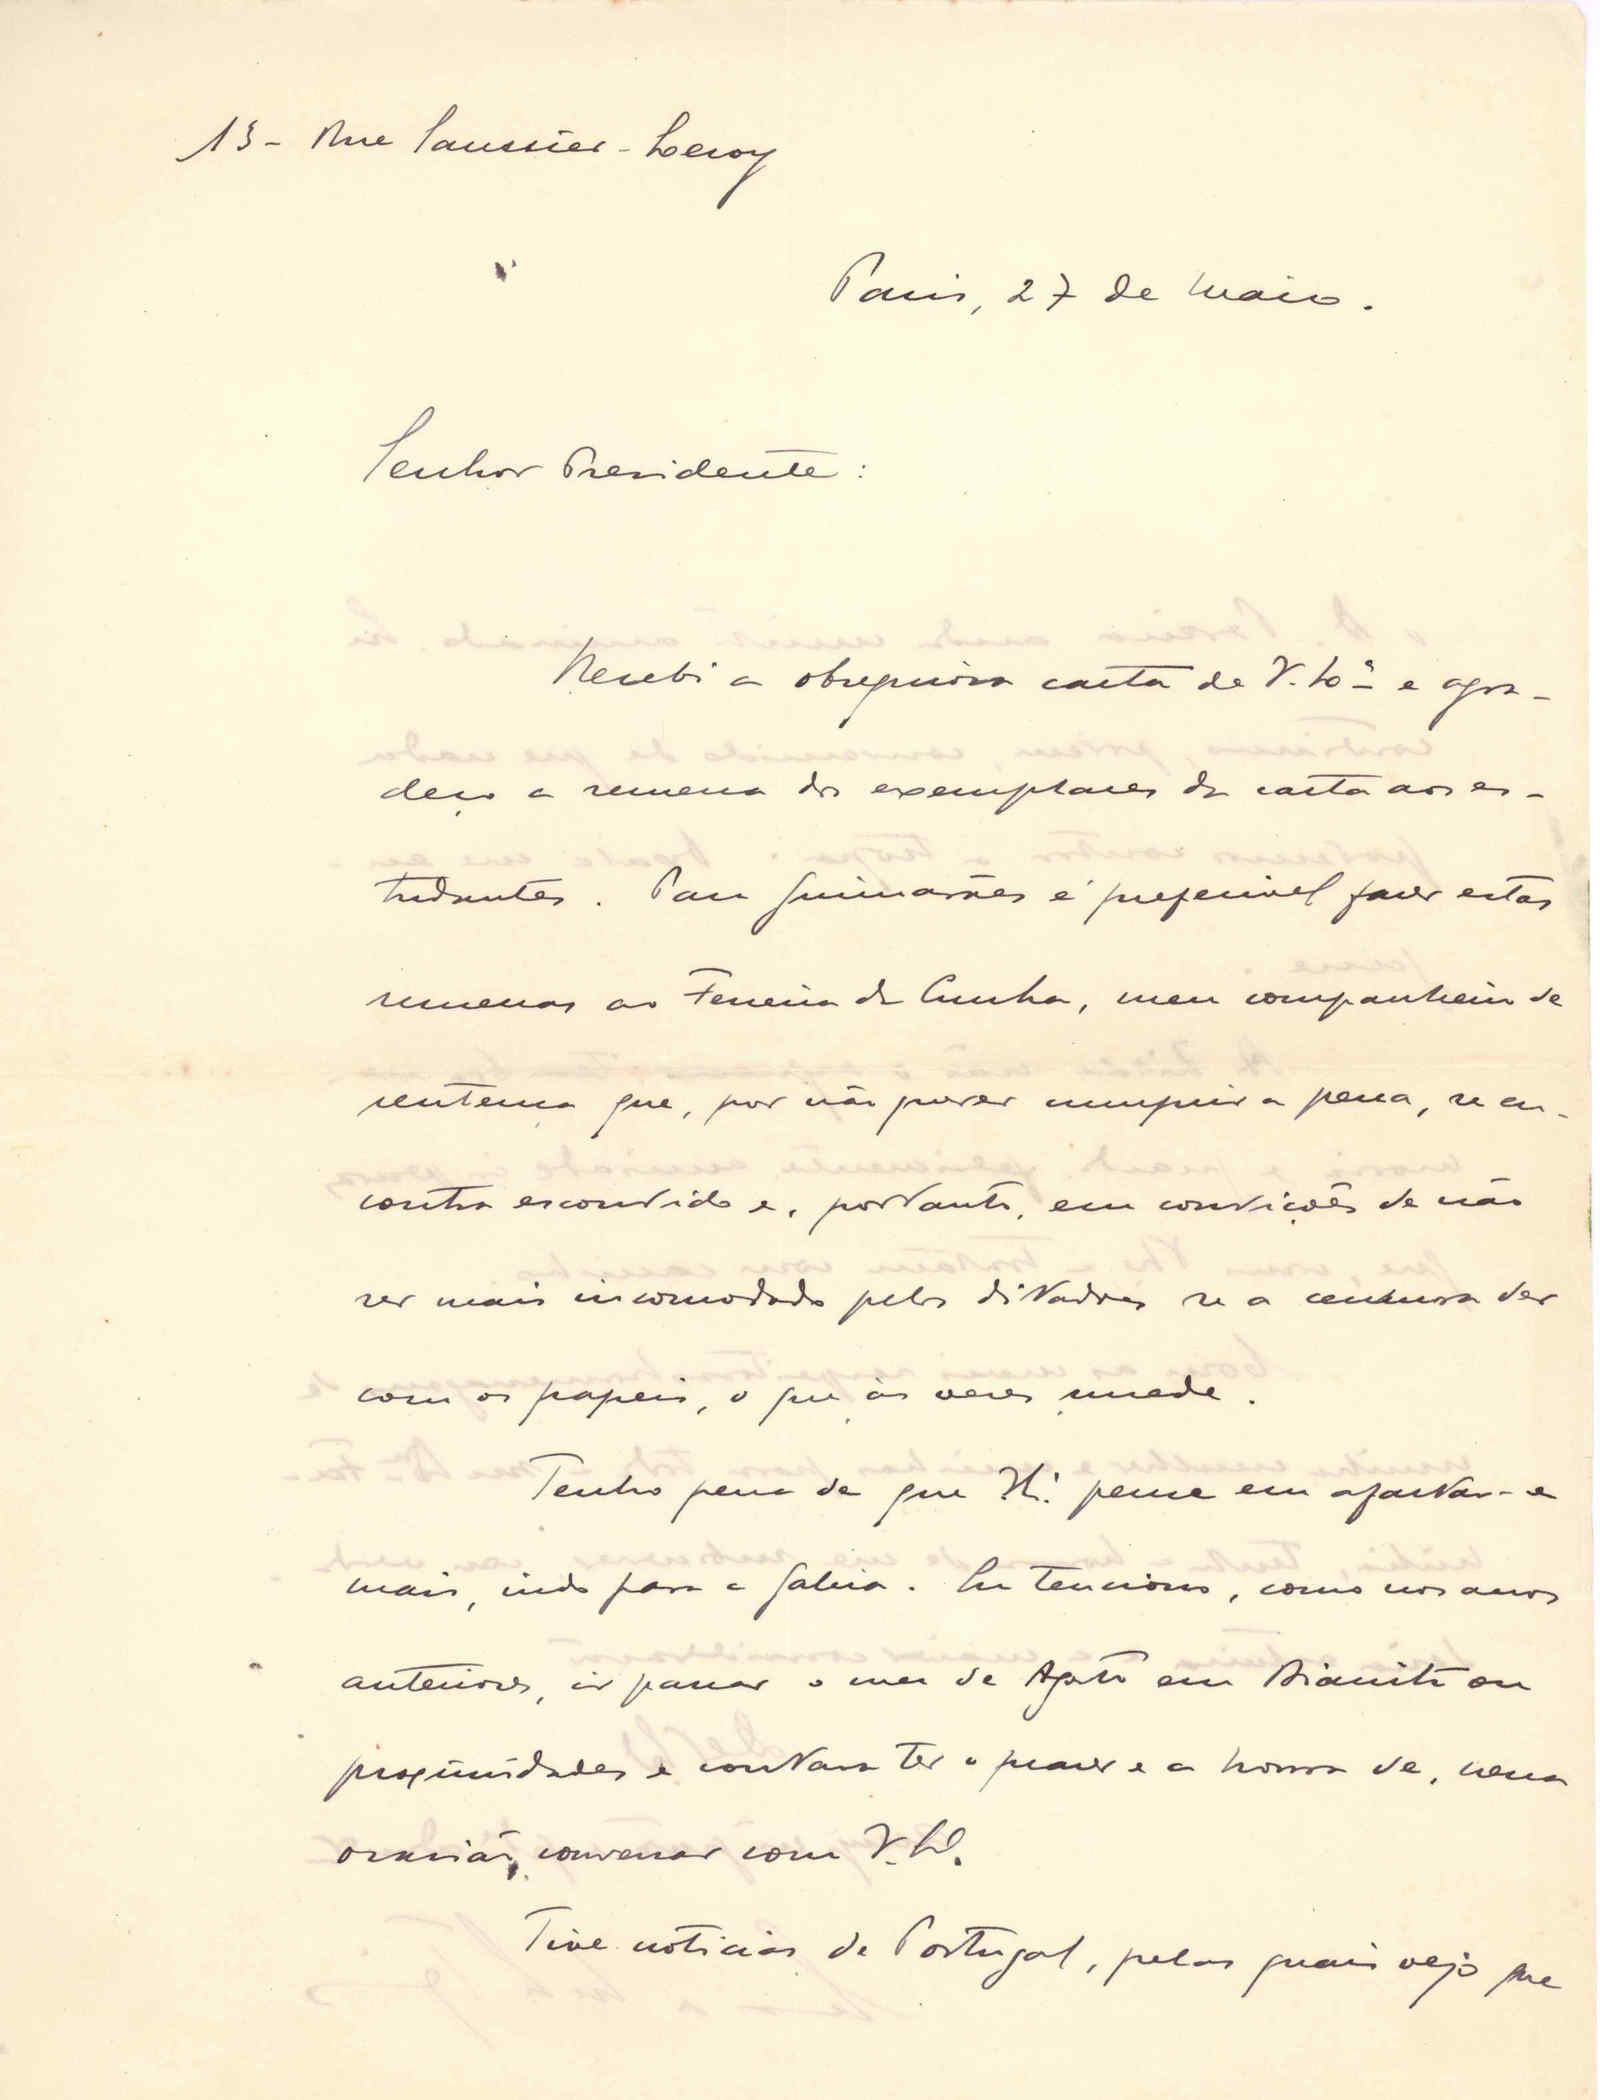 13 - Rue Saussier-Leroy
Paris, 27 de Maio.
Senhor Presidente:
Recebi a obsequiosa carta de V. Exª e agra-
deço a remessa dos exemplares da carta aos es-
tudantes. Para Guimarães é preferivel fazer estas
remessas ao Ferreira da Cunha, meu companheiro de
sentença que, por não querer cumprir a pena, se en-
contra escondido e, portanto, em condições de não
ser mais incomodado pelos ditadores se a censura der
com os papeis, o que às vezes sucede.
Tenho pena de que V. Exª pense em afastar-se
mais, indo para a Galiza. Eu tenciono, como nos anos
anteriores, ir passar o mez de Agosto em Biarritz ou
proximidades e contava ter o prazer e a honra de, nessa
ocasião, conversar com V. Exª.
Tive noticias de Portugal, pelas quais vejo que